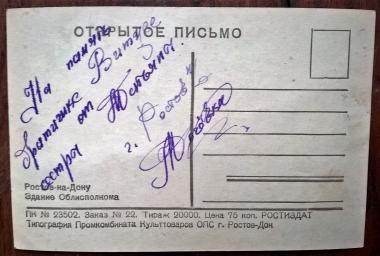 ОТКРЫТОЕ ПИСЬМО
На память
братишке Витуре
сестры от Татьяны
г. Ростов н
Ростов-на-Дону
Здание Облисполкома
ПК № 23502. Заказ № 22. Тираж 20000. Цена 75 коп. РОСТИЗДАТ
Типография Промкомбината Культтоваров ОПС г. Ростов-Дон